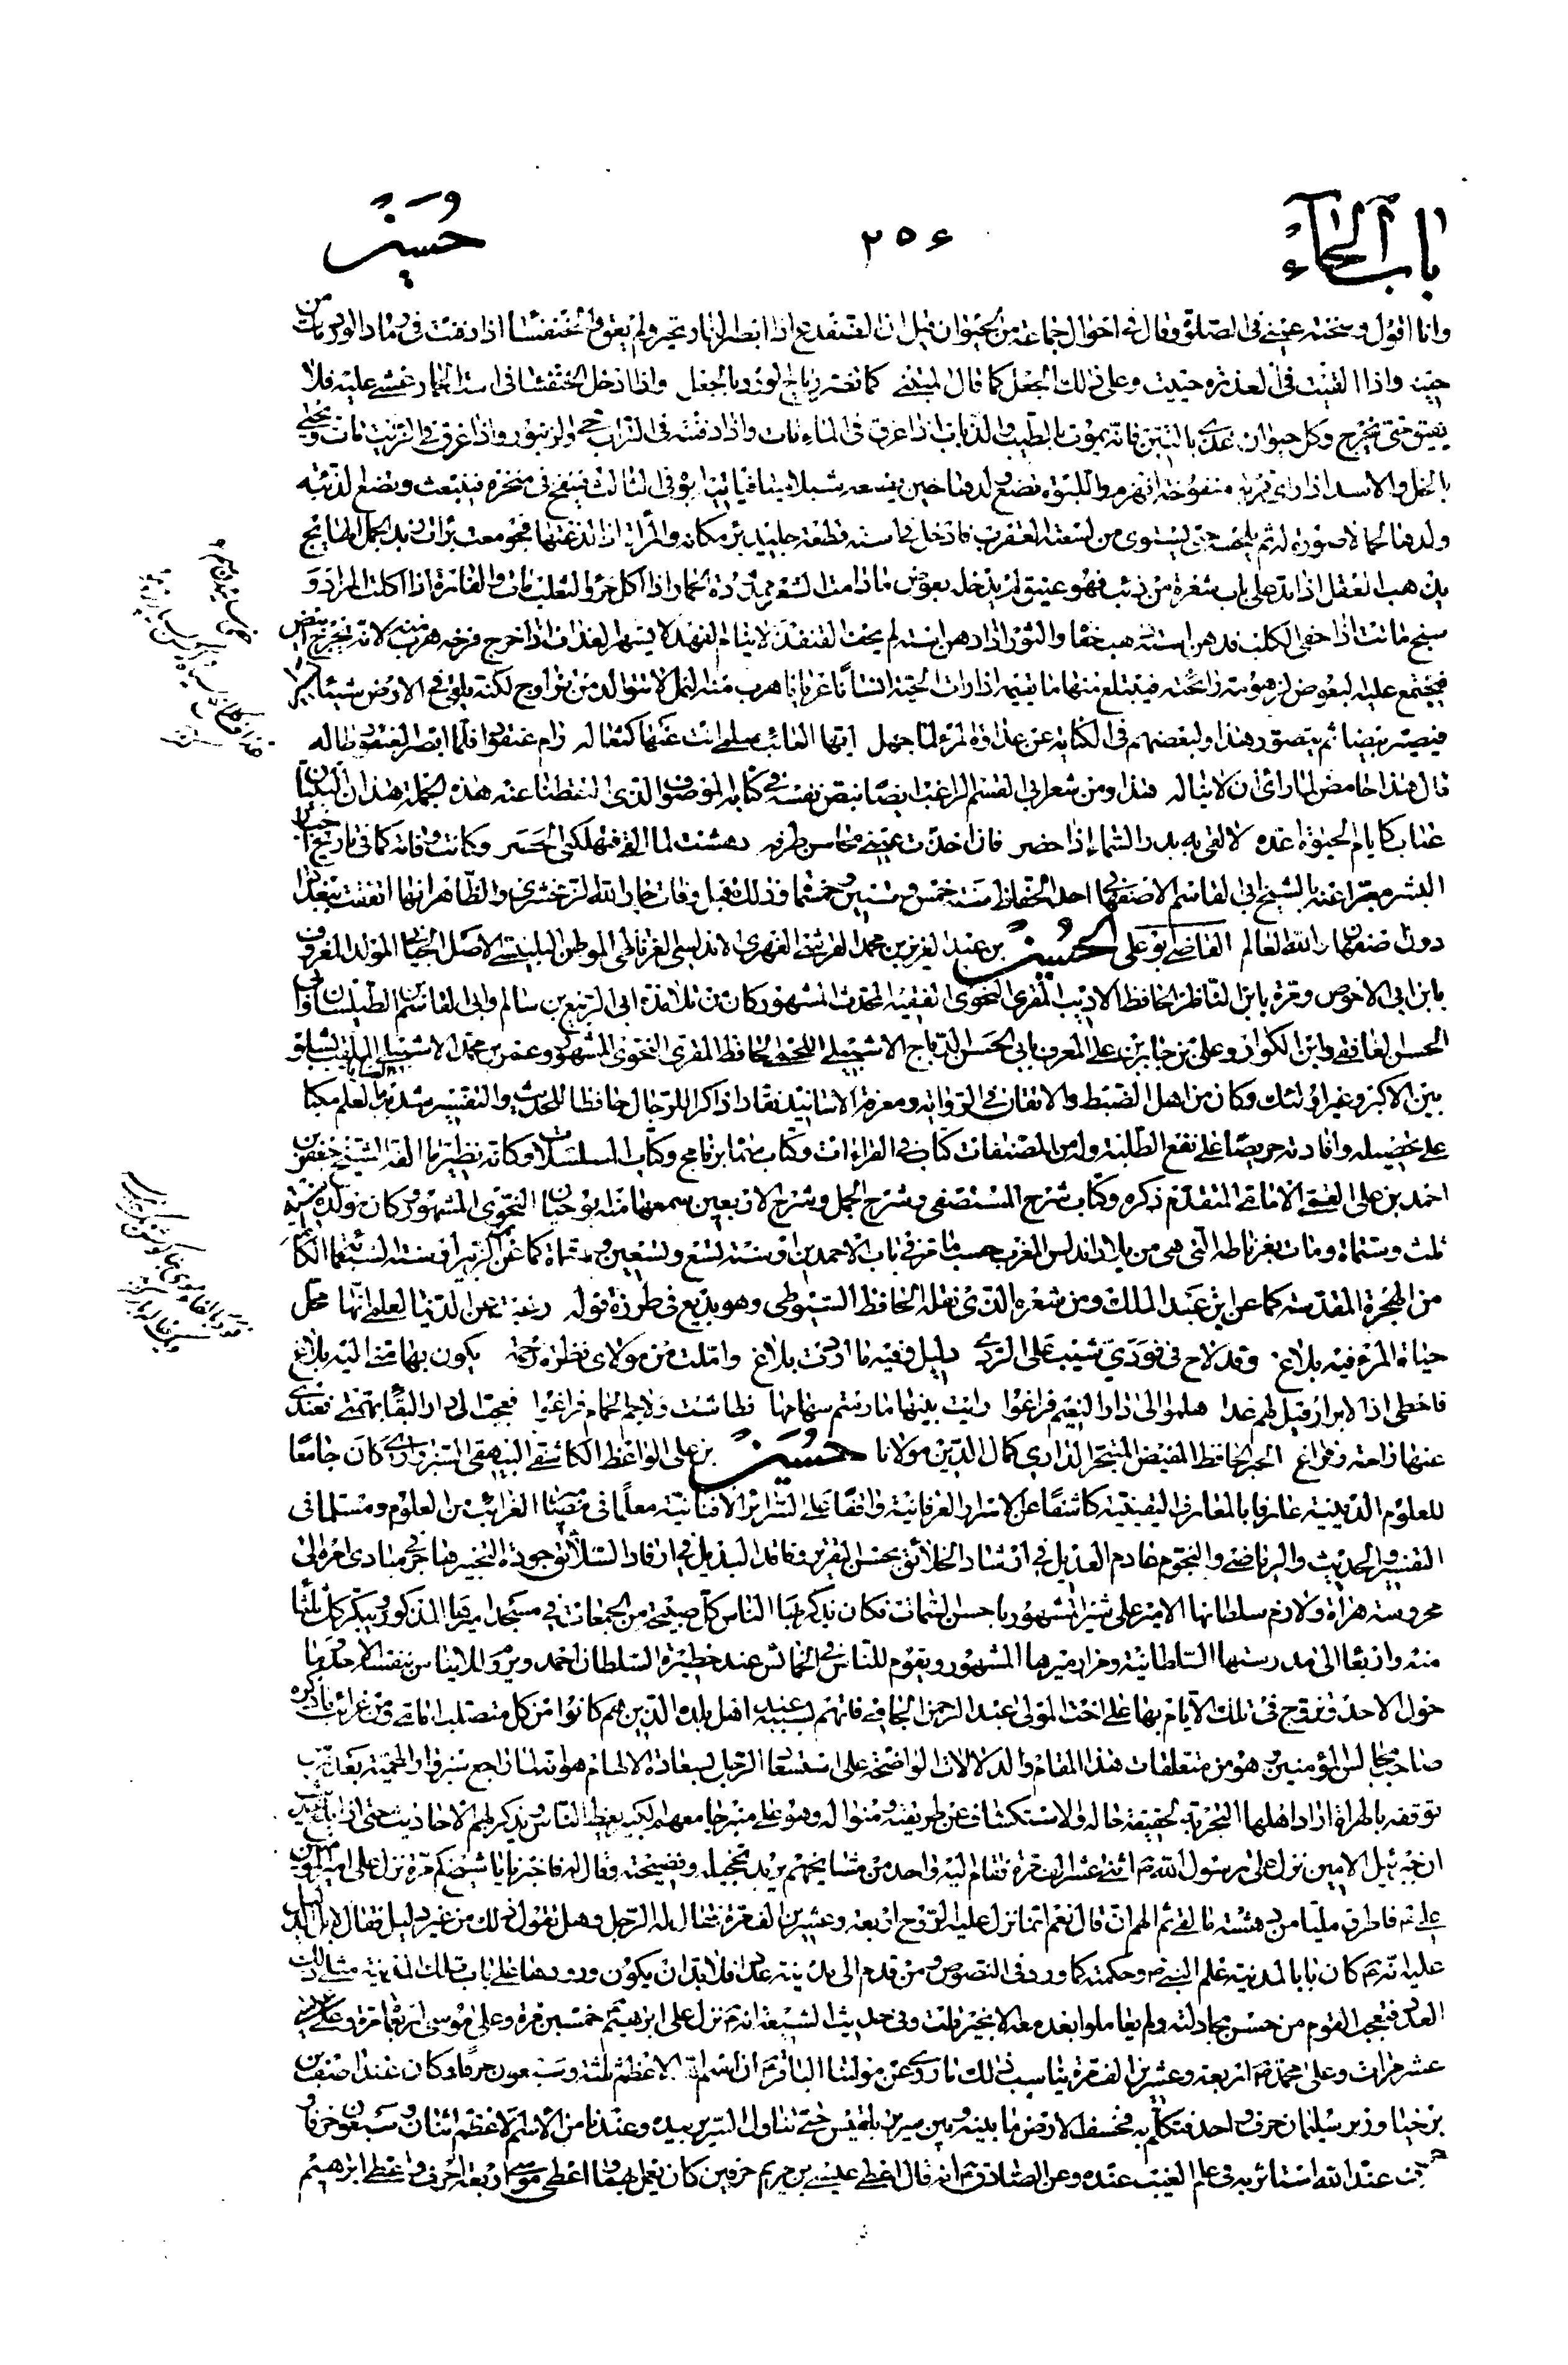 باب الحاء
٢٥۶
حسين
وانا اقول وسخنة عيني في الصلوة وقال في احوال جماعة من الحيوان قيل ان القنفدع اذا ابصر النار تحير ولم يعق والخنفساء اذا دفنت في رماد الورد ماتت من
حينه واذا القيت في العذرة حييت وعلى ذلك الجعل كما قال المتنبي كما تضر رياح الورد بالجعل واذا ادخل الخنفساء في است الحمار غشي عليه فلا
يفيق حتى يخرج وكل حيوان غذي بالتبن فانه يموت بالطيب والذباب اذا غرق في الماء مات واذا دفنته في التراب حي والزنبور اذا غرق في الزيت مات ويحيى
بالخل والاسد اذا راى قربة منفوخة انهزم واللبوة تضع ولدها حين يضعه شبلا ميتا فياتيه ابوه في الثالث فينفخ في منخره فينبعث وتضع الذئبة
ولدها لحما لا صورة له ثم يلحسه حتى يستوي من لسعته العقرب فادخل في استه قطعة جليد برء مكانه والمراة اذا لذعتها
يذهب العقل اذا بدهلى باب شعرة من ذنب فهو عتيق لم يدخله بعوض ما دامت الشعرة مشدودة الحمار اذا اكل خرء الثعلب مات والفارة اذا اكلت المرادو
سبخ ماتت اذا خفي الكلب قد دهن استه هب خفا والثور اذا دهن استه لم يخف القنفذ لا ينام الفهد لا يشهر الغداف اذا خرج فرخه هرب منه لانه يخرج ابيض
فيجتمع عليه البعوض لزهومة رائحته فيبتلع منها ما يقيمه اذا رات الحية انسانا عريانا هرب منه النمل لا تتوالد من تزاوج لكنه يلقي في الارض شيئا يسيرا
فيصير بيضا ثم يتصور هذا ولبعضهم في الكناية عن عداوة المرء لما جهل ايها العائب سلمى انت عنها كثعاله رام عنقودا فلما ابصر العنقود طاله
قال هذا حامض لما راى ان لا يناله هذا ومن شعر ابي القاسم الراغب ايضا بنص نفسه في كتابه الموصوف الذي التقطنا عنه هذه الجملة هذان البيتان
عتاب كايام الحيوة اعده لالقى به بدر السماء اذا حضر فان اخذت عيني محاسن طرفه دهشت لما القى فيهلكني الحصر وكانت وفاته كما في تاريخ اخبار
البشر معبرا عنه بالشيخ ابي القاسم الاصفهاني احد الحفاظ سنة خمس وستين وخمسمائة وذلك قبل وفات جار الله الزمخشري والظاهر انها اتفقت ببغداد
دون اصفهان والله العالم القاضي ابو علي الحسين بن عبد العزيز بن محمد القرشي الفهري الاندلسي الغرناطي الموطن البلنيسي الاصل الجياني المولد المعروف
بابن ابي الاحوص وتارة بابن الناظر الحافظ الاديب المقري النحوي الفقيه المحدث المشهور كان من تلامذة ابي الربيع بن سالم وابي القاسم بن الطيلسان وابي
الحسن الغافقي وابن الكواب وعلي بن جابر بن علي المعروف بابي الحسن الدباج الاشبيلي اللخمي الحافظ المقري النحوي المشهور وعمر بن محمد الاشبيلي الملقب بالشلوبين
بين الاكبر وغير اولئك وكان من اهل الضبط والاتقان في الرواية ومعرفة الاسانيد نقادا ذاكرا للرجال حافظا للحديث والتفسير شديدا بالعلم مكبا
على تحصيله وافادته حريصا على نفع الطلبة وله من المصنفات كتاب في القراءات وكتاب سماه برنامج وكتاب المسلسلات وكانه نظير ما الفه الشيخ جعفر بن
احمد بن علي القمي الامامي المتقدم ذكره وكتاب شرح المستصفى وشرح الجمل وشرح الاربعين سمعها منه ابو حيان النحوي المشهور كان تولده سنة
ثلث وستماة ومات بغرناطة التي هي من بلاد اندلس المغرب حسب ما مر في باب الاحمدين سنة تسع وتسعين وستماة كما عن ابن الزبير او سنة السبعماة الكائنة
من الهجرة المقدسة كما عن ابن عبد الملك ومن شعره الذي نقله الحافظ السيوطي وهو بديع في طرزه قوله رغبت عن الدنيا لعلمي انها محل
حياة المرء فيه بلاغ وقد لاح في فودي شيب على الردى دليل وفيه ما اردت بلاغ واملت من مولاي نظرة رحمة يكون بها مني اليه بلاغ
فاحظى اذ الابرار قيل لهم غدا هلموا الى دار النعيم فراغوا رايت بينها ما رمتهم سهامها فطاشت ولاجم الحمام فراغوا فعجت لدار البقاء
عنها راحة وفراغ الحبر الحافظ المفيض المتبحر الداري كمال الدين مولانا حسين بن علي الواعظ الكاشفي البيهقي السبزواري كان جامعا
للعلوم الدينية عارفا بالمعارف اليقينية كاشفا عن الاسرار العرفانية واقفا على السرائر الافنانية معلما في مضمار الغرائب من العلوم ومسلما في
التفسير والحديث والرياضي والنجوم عادم العديل في ارشاد الخلائق بحسن التقرير وفاقد البديل في ارقاد السلائق بجودة التحبير جاء في مبادي امره الى
محروسة هراة ولازم سلطانها الامير علي شير المشهور باحسن السمات فكان يذكر بها الناس كل صبيحة من الجمعات في مسجد اميرها المذكور ويبكر كل ثلثا
منه واربعا الى مدرستها السلطانية ومزار ميرها المشهور ويقوم للناس في الخمائس عند حظيرة السلطان احمد
حول الاحد وتزوج في تلك الايام بها على اخت المولى عبد الرحمن الجامي فاتهم بسببه عند اهل بلده الذين هم كانوا من كل متصلب امامي ومن غرائب ما ذكره
صاحب مجالس المؤمنين هو من متعلقات هذا المقام والدلالات الواضحة على استسعاد الرجل بسعادة الالهام هو انه لما راجع سبزوار المحمية بعد
توقفه بالهراة اراد اهلها التجربة لحقيقة حاله والاستكشاف عن طريقته ومنواله وهو على منبر جامعهم الكبير يعظ الناس ويذكر لهم الاحاديث حتى اذا بلغ حديث
ان جبرئيل الامين نزل على رسول الله ص اثنى عشر الف مرة فقام اليه واحد من مشايخهم يريد تخجيله وفضيحته وقال له فاخبرنا يا شيخ كم مرة نزل على امير المؤمنين
علي ع فاطرق مليا من دهشته ثم الهم ان قال نعم انما نزل عليه الروح اربعة وعشرين الف مرة فقال له الرجل وهل تقول ذلك من غير دليل فقال لا بل الدليل
عليه انه ع كان بابا لمدينة علم النبي ص وحكمته كما ورد في النصوص ومن قدم الى مدينة عدل فلا بد ان يكون وروده على باب تلك المدينة مثلي ذلك
العدد فتعجب القوم من حسن مجادلته ولم يعاملوا بعد معه الا بخير قلت وفي حديث الشيعة انه نزل على ابرهيم ع خمسين مرة وعلى موسى اربعمائة مرة وعلى عيسى
عشر مرات وعلى محمد ص اربعة وعشرين الف مرة يناسب ذلك ما روي عن مولنا الباقر ع ان اسم الله الاعظم ثلثة وسبعون حرفا وكان عند اصف بن
برخيا وزير سليمان حرف واحد فتكلم به فخسف الارض ما بينه وبين سرير بلقيس حتى تناول السرير بيده وعندنا من الاسم الاعظم اثنان وسبعون حرفا و
حرف عند الله استاثر به في علم الغيب عنده وعن الصادق ع انه قال اعطي عيسى بن مريم حرفين كان يعمل بهما واعطي موسى اربعة احرف واعطي ابرهيم